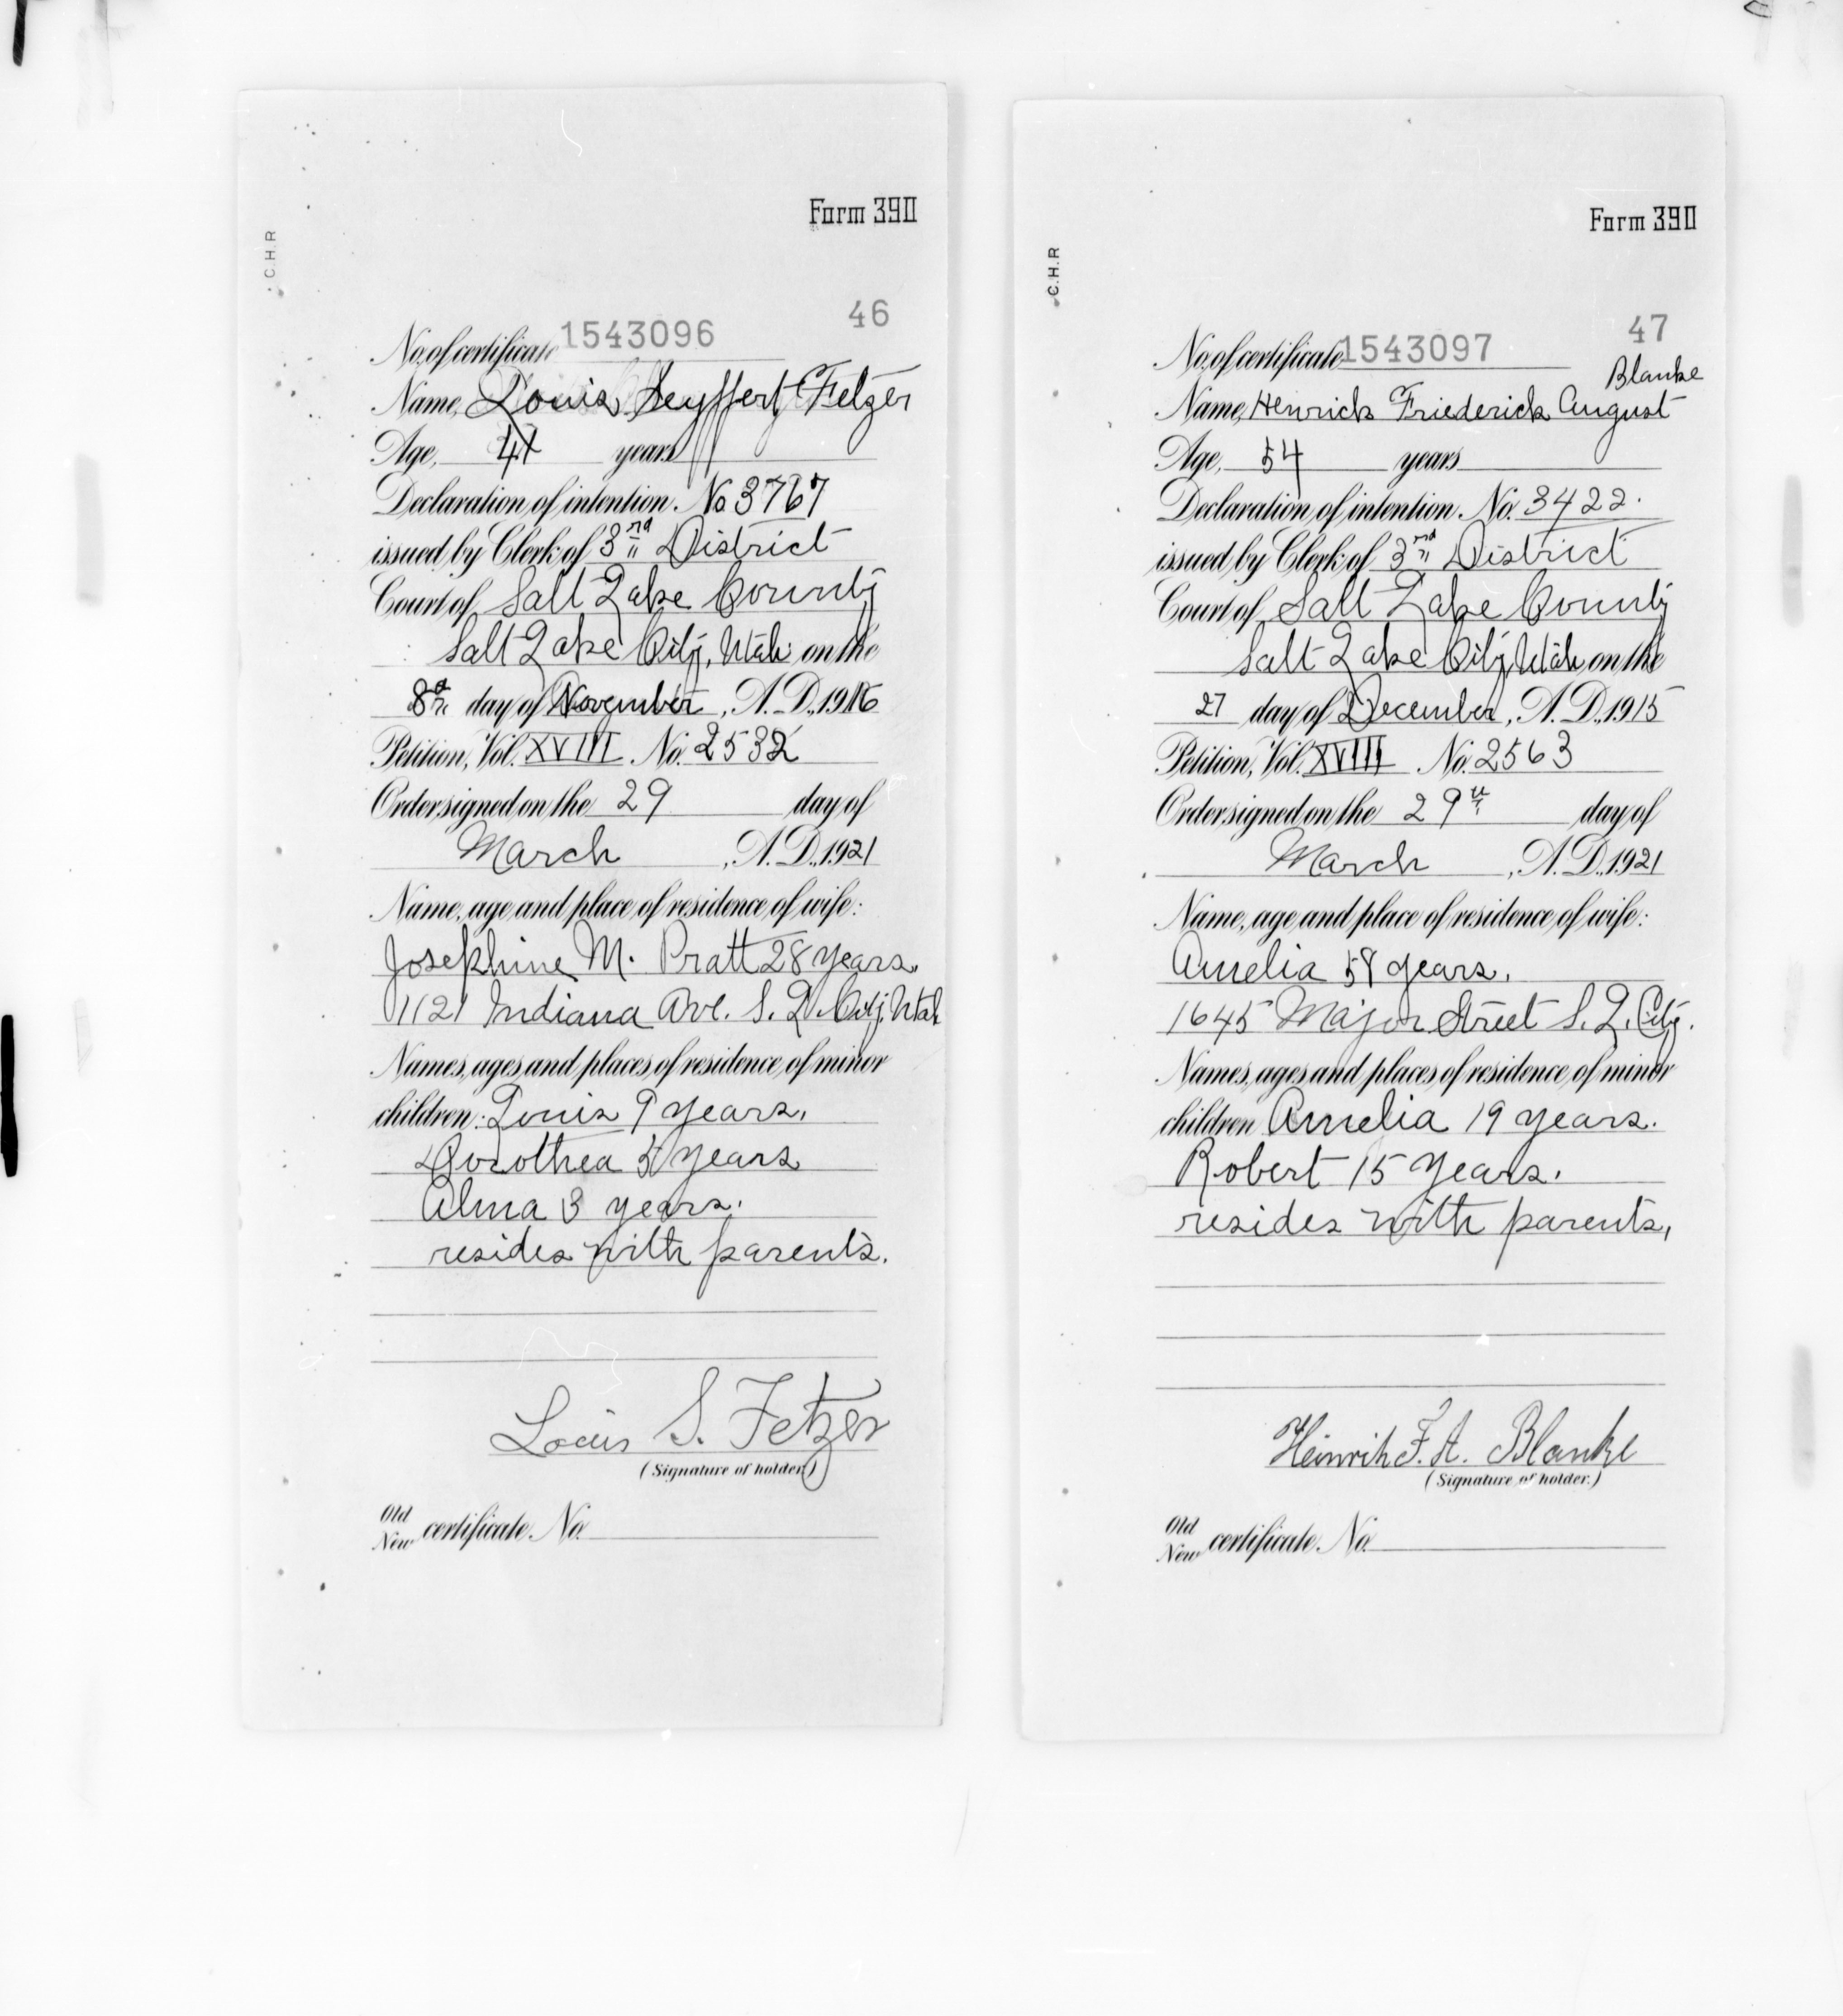 Form 390
C.H.R
46
No. of certificate 1543096
Name, Louis Seyffert Fetzer
Age, 41 years
Declaration of intention. No. 3767
issued by Clerk of 3rd District
Court of Salt Lake County
Salt Lake City, Utah on the
8th day of November, A.D., 1916
Petition, Vol. XVIII No. 2532
Order signed on the 29 day of
March, A.D., 1921
Name, age and place of residence of wife:
Josephine M. Pratt 28 years.
1121 Indiana Ave. S. L. City, Utah
Names, ages and places of residence of minor
children: Louis 9 years.
Dorothea 5 years
Alma 3 years.
resides with parents.
Louis S. Fetzer
(Signature of holder.)
Old
New certificate. No.
Form 390
C.H.R
47
No. of certificate 1543097
Blanke
Name, Henrich Friederich August
Age, 54 years
Declaration of intention. No. 3422.
issued by Clerk of 3rd District
Court of Salt Lake County
Salt Lake City, Utah on the
27 day of December, A.D., 1915
Petition, Vol. XVIII No. 2563
Order signed on the 29th day of
March, A.D., 1921
Name, age and place of residence of wife:
Amelia years.
1645 Major Street S. L. City.
Names, ages and places of residence of minor
children Amelia 19 years.
Robert 15 years.
resides with parents,
Heinrich F. A. Blanke
(Signature of holder.)
Old
New certificate. No.